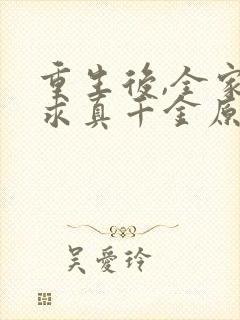 重生後,全家
求真千金原
吳愛玲